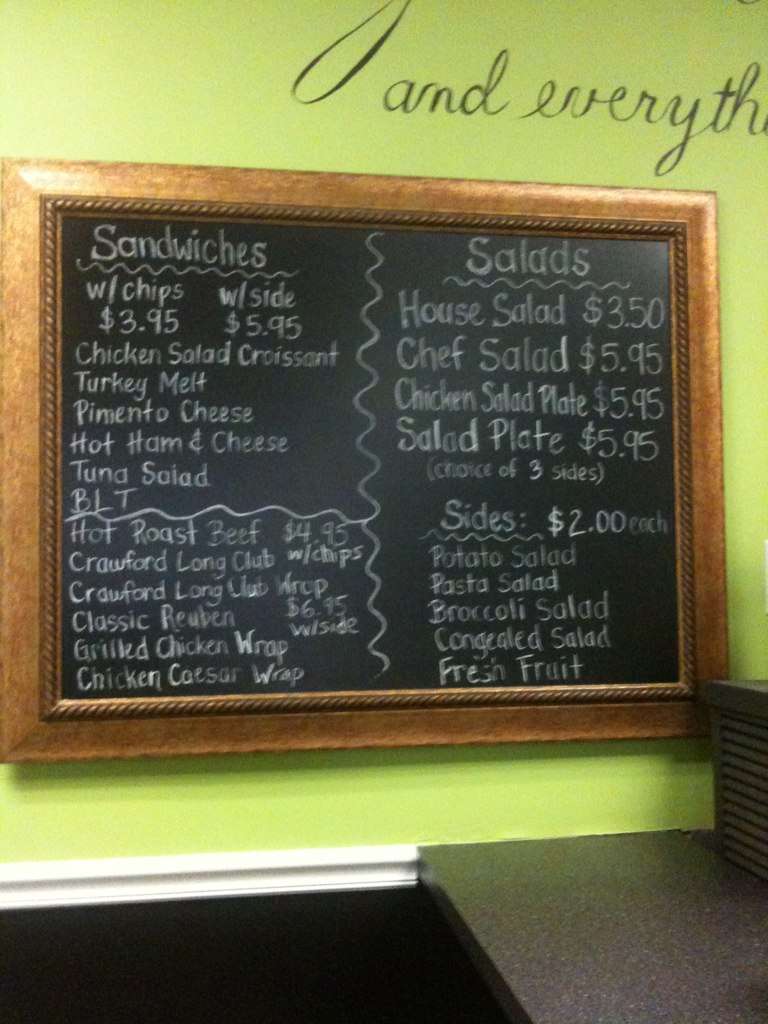 and everyth
Sandwiches
w/chips w/side
$3.95 $5.95
Chicken Salad Croissant
Turkey Melt
Pimento Cheese
Hot Ham & Cheese
Tuna Salad
BLT
Hot Roast Beef $4.95
Crawford Long Club w/chips
Crawford Long Club Wrap
Classic Reuben $6.95
w/side
Grilled Chicken Wrap
Chicken Caesar Wrap
Salads
House Salad $3.50
Chef Salad $5.95
Chicken Salad Plate $5.95
Salad Plate $5.95
(choice of 3 sides)
Sides: $2.00 each
Potato Salad
Pasta Salad
Broccoli Salad
Congealed Salad
Fresh Fruit